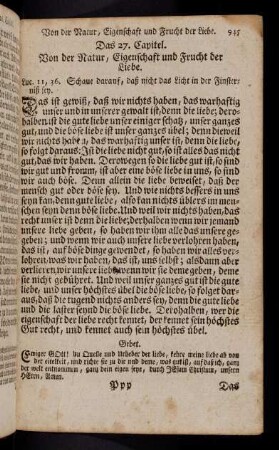 Von der Natur, Eigenschaft und Frucht der Liebe. 935
Das 27. Capitel.
Von der Natur, Eigenschaft und Frucht der
Liebe.
Luc. 11, 36. Schaue darauf, daß nicht das Licht in der Finster-
niß sey.
Das ist gewiß, daß wir nichts haben, das warhaftig
unser und in unserer gewalt ist, denn die liebe; dero-
halben ist die gute liebe unser einiger schatz, unser gantzes
gut, und die böse liebe ist unser gantzes übel; denn dieweil
wir nichts haben, das warhaftig unser ist, denn die liebe,
so folget daraus: Ist die liebe nicht gut, so ist alles das nicht
gut, das wir haben. Derowegen so die liebe gut ist, so sind
wir gut und fromm, ist aber eine böse liebe in uns, so sind
wir auch böse. Denn allein die liebe beweiset, daß der
mensch gut oder böse sey. Und wie nichts bessers in uns
seyn kan, denn gute liebe, also kan nichts üblers im men-
schen seyn denn böse liebe. Und weil wir nichts haben, das
recht unser ist denn die liebe; derhalben wenn wir jemand
unsere liebe geben, so haben wir ihm alle das unsere ge-
geben; und wenn wir auch unsere liebe verlohren haben,
das ist, auf böse dinge gewendet, so haben wir alles ver-
lohren, was wir haben, das ist, uns selbst; alsdann aber
verlieren wir unsere liebe wenn wir sie deme geben, deme
sie nicht gebühret. Und weil unser gantzes gut ist die gute
liebe, und unser höchstes übel die böse liebe, so folget dar-
aus, daß die tugend nichts anders sey, denn die gute liebe
und die laster seynd die böse liebe. Derohalben, wer die
eigenschaft der liebe recht kennet, der kennet sein höchstes
Gut recht, und kennet auch sein höchstes übel.
Gebet.
Ewiger GOtt! du Quelle und Urheber der liebe, kehre meine liebe ab von
der eitelkeit, und richte sie zu dir und deme, was gut ist, auf daß ich, gantz
der welt entnommen, gantz dein eigen seyn, durch JEsum Christum, unsern
HErrn, Amen.
Ppp Das